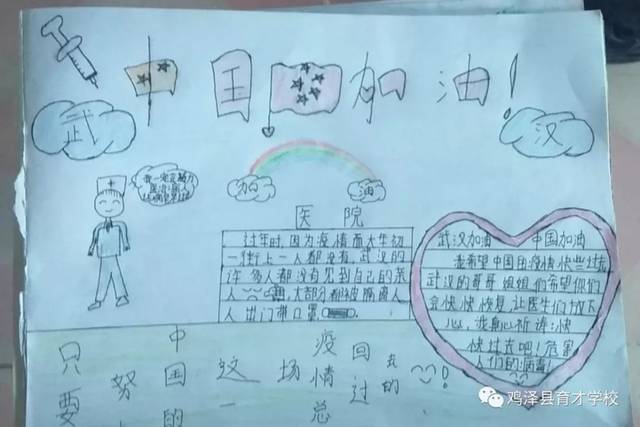 中国加油!
武
汉
加
油
医院
过年时,因为疫情而大年初
一街上一人都没有,武汉的
许多人都没有见到自己的亲
人
大部分都被隔离人
人出门带口罩
武汉加油 中国加油
我希望中国的疫情快些过去
武汉的哥哥姐姐们希望你们
会快快恢复,让医生们放下
心,我真心祈祷:快
快过去吧!危害
人们的病毒!
只要
努
中国的
这一
场
疫情总
回过
去的
!
鸡泽县育才学校